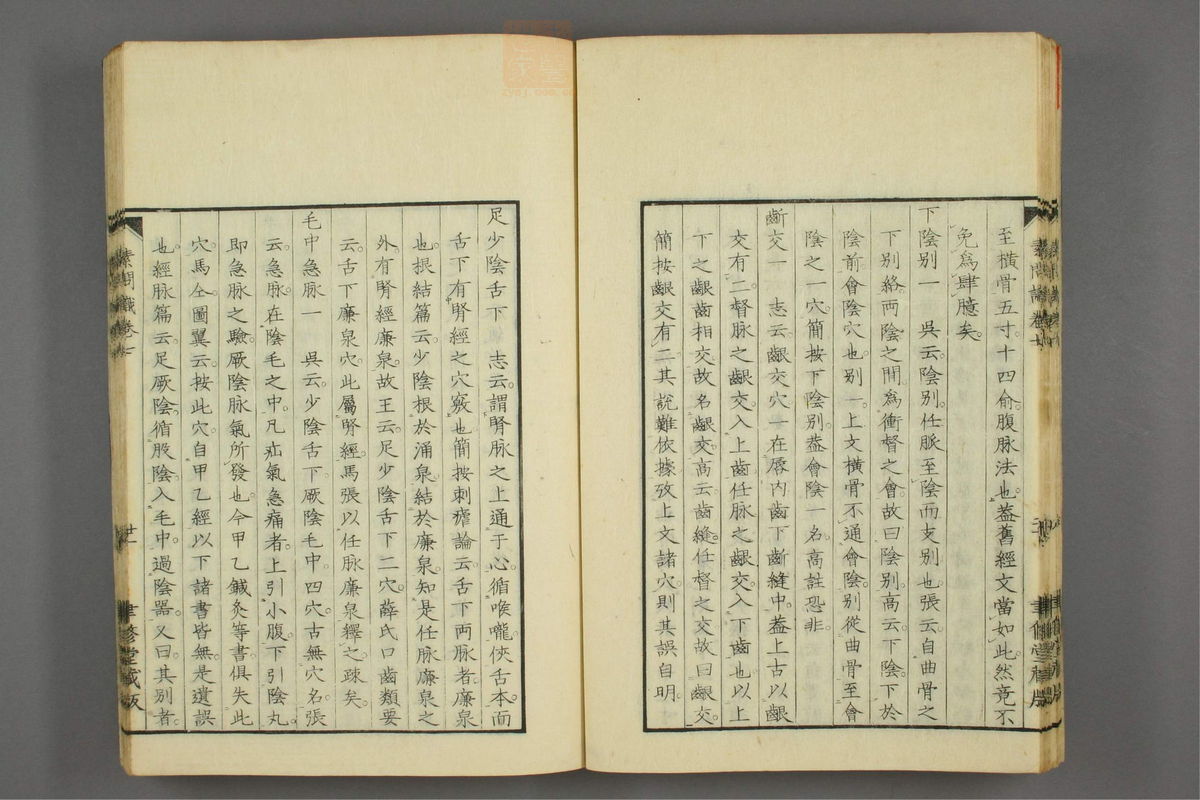 至橫骨五寸十四俞腹脉法也。蓋舊經文當如此然竟不
免爲肆臆矣。
下陰別一　吳云。陰別。任脈至陰而支別也。張云。自曲骨之
下。別絡兩陰之間。爲衝督之會。故曰陰別。高云。下陰。下於
陰前會陰穴也。別一。上文橫骨不通會陰。別從曲骨至會
陰之一穴。簡按下陰別。蓋會陰一名。高註恐非。
齗交一　志云。齦交穴一。在脣內齒下齗縫中。蓋上古以齦
交有二。督脉之齦交。入上齒。任脉之齦交。入下齒也。以上
下之齦齒相交。故名齦交。高云。齒縫任督之交。故曰齦交。
簡按齦交有二。其說難依據。攷上文諸穴。則其誤自明。
足少陰舌下　志云。謂腎脉之上通于心。循喉嚨。俠舌本。而
舌下有腎經之穴竅也。簡按刺瘧論云。舌下兩脉者。廉泉
也。根結篇云。少陰根於涌泉。結於廉泉。知是任脉廉泉之
外。有腎經廉泉。故王云。足少陰舌下二穴。薛氏口齒類要
云。舌下廉泉穴。此屬腎經。馬張以任脉廉泉釋之。疎矣。
毛中急脉一　吳云。少陰舌下厥陰毛中四穴。古無穴名。張
云。急脉。在陰毛之中。凡疝氣急痛者。上引小腹。下引陰丸。
即急脉之驗。厥陰脉氣所發也。今甲乙鍼灸等書。俱失此
穴。馬仝。圖翼云。按此穴。自甲乙經以下諸書皆無。是遺誤
也。經脉篇云。足厥陰。循股陰。入毛中。過陰器。又曰。其別者。
素問識卷七
廿一
聿修堂藏版